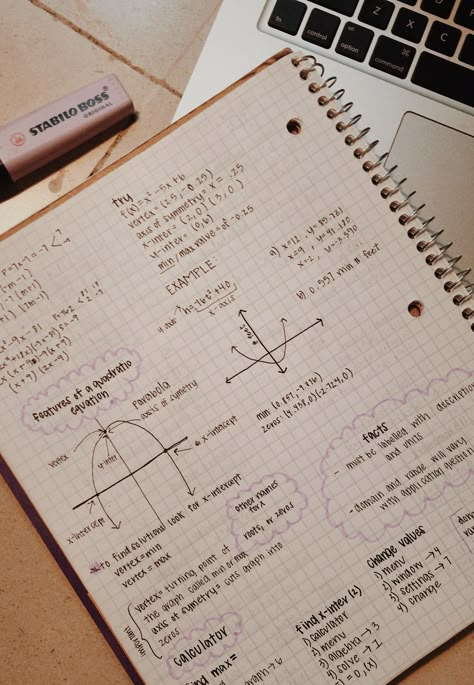 STABILO BOSS
ORIGINAL
fn
control
option
command
Z
X
C
try
f(x)=x²-5x+6
vertex = (2.5, -0.25)
axis of symmetry = x = .25
x-inter = (2,0) (3,0)
y-inter = (0,6)
min/max value = of -0.25
EXAMPLE:
h=-16t²+40
x-axis
a) x=12
x=9
x=2
b) 0.557 min n feet
(x+9) (2x-9)
features of a quadratic
equation
parabola
axis of symetry
x-intercept
vertex
y-inter
x-intercept
to find solutions look for x-intercept
vertex=min
vertex = max
other names
for x
roots, or zeros
facts
- must be labelled with description
and units
- domain and range will vary
with application question
important
vertex= turning point of
the graph called min or max
axis of symetry= cuts graph into
zeros
calculator
find max=
graph→6
find x-inter (2)
1) calculator
2) menu
3) algebra→3
4) solve→1
=0,(x)
change values
1) menu
2) window→4
3) settings→1
4) change